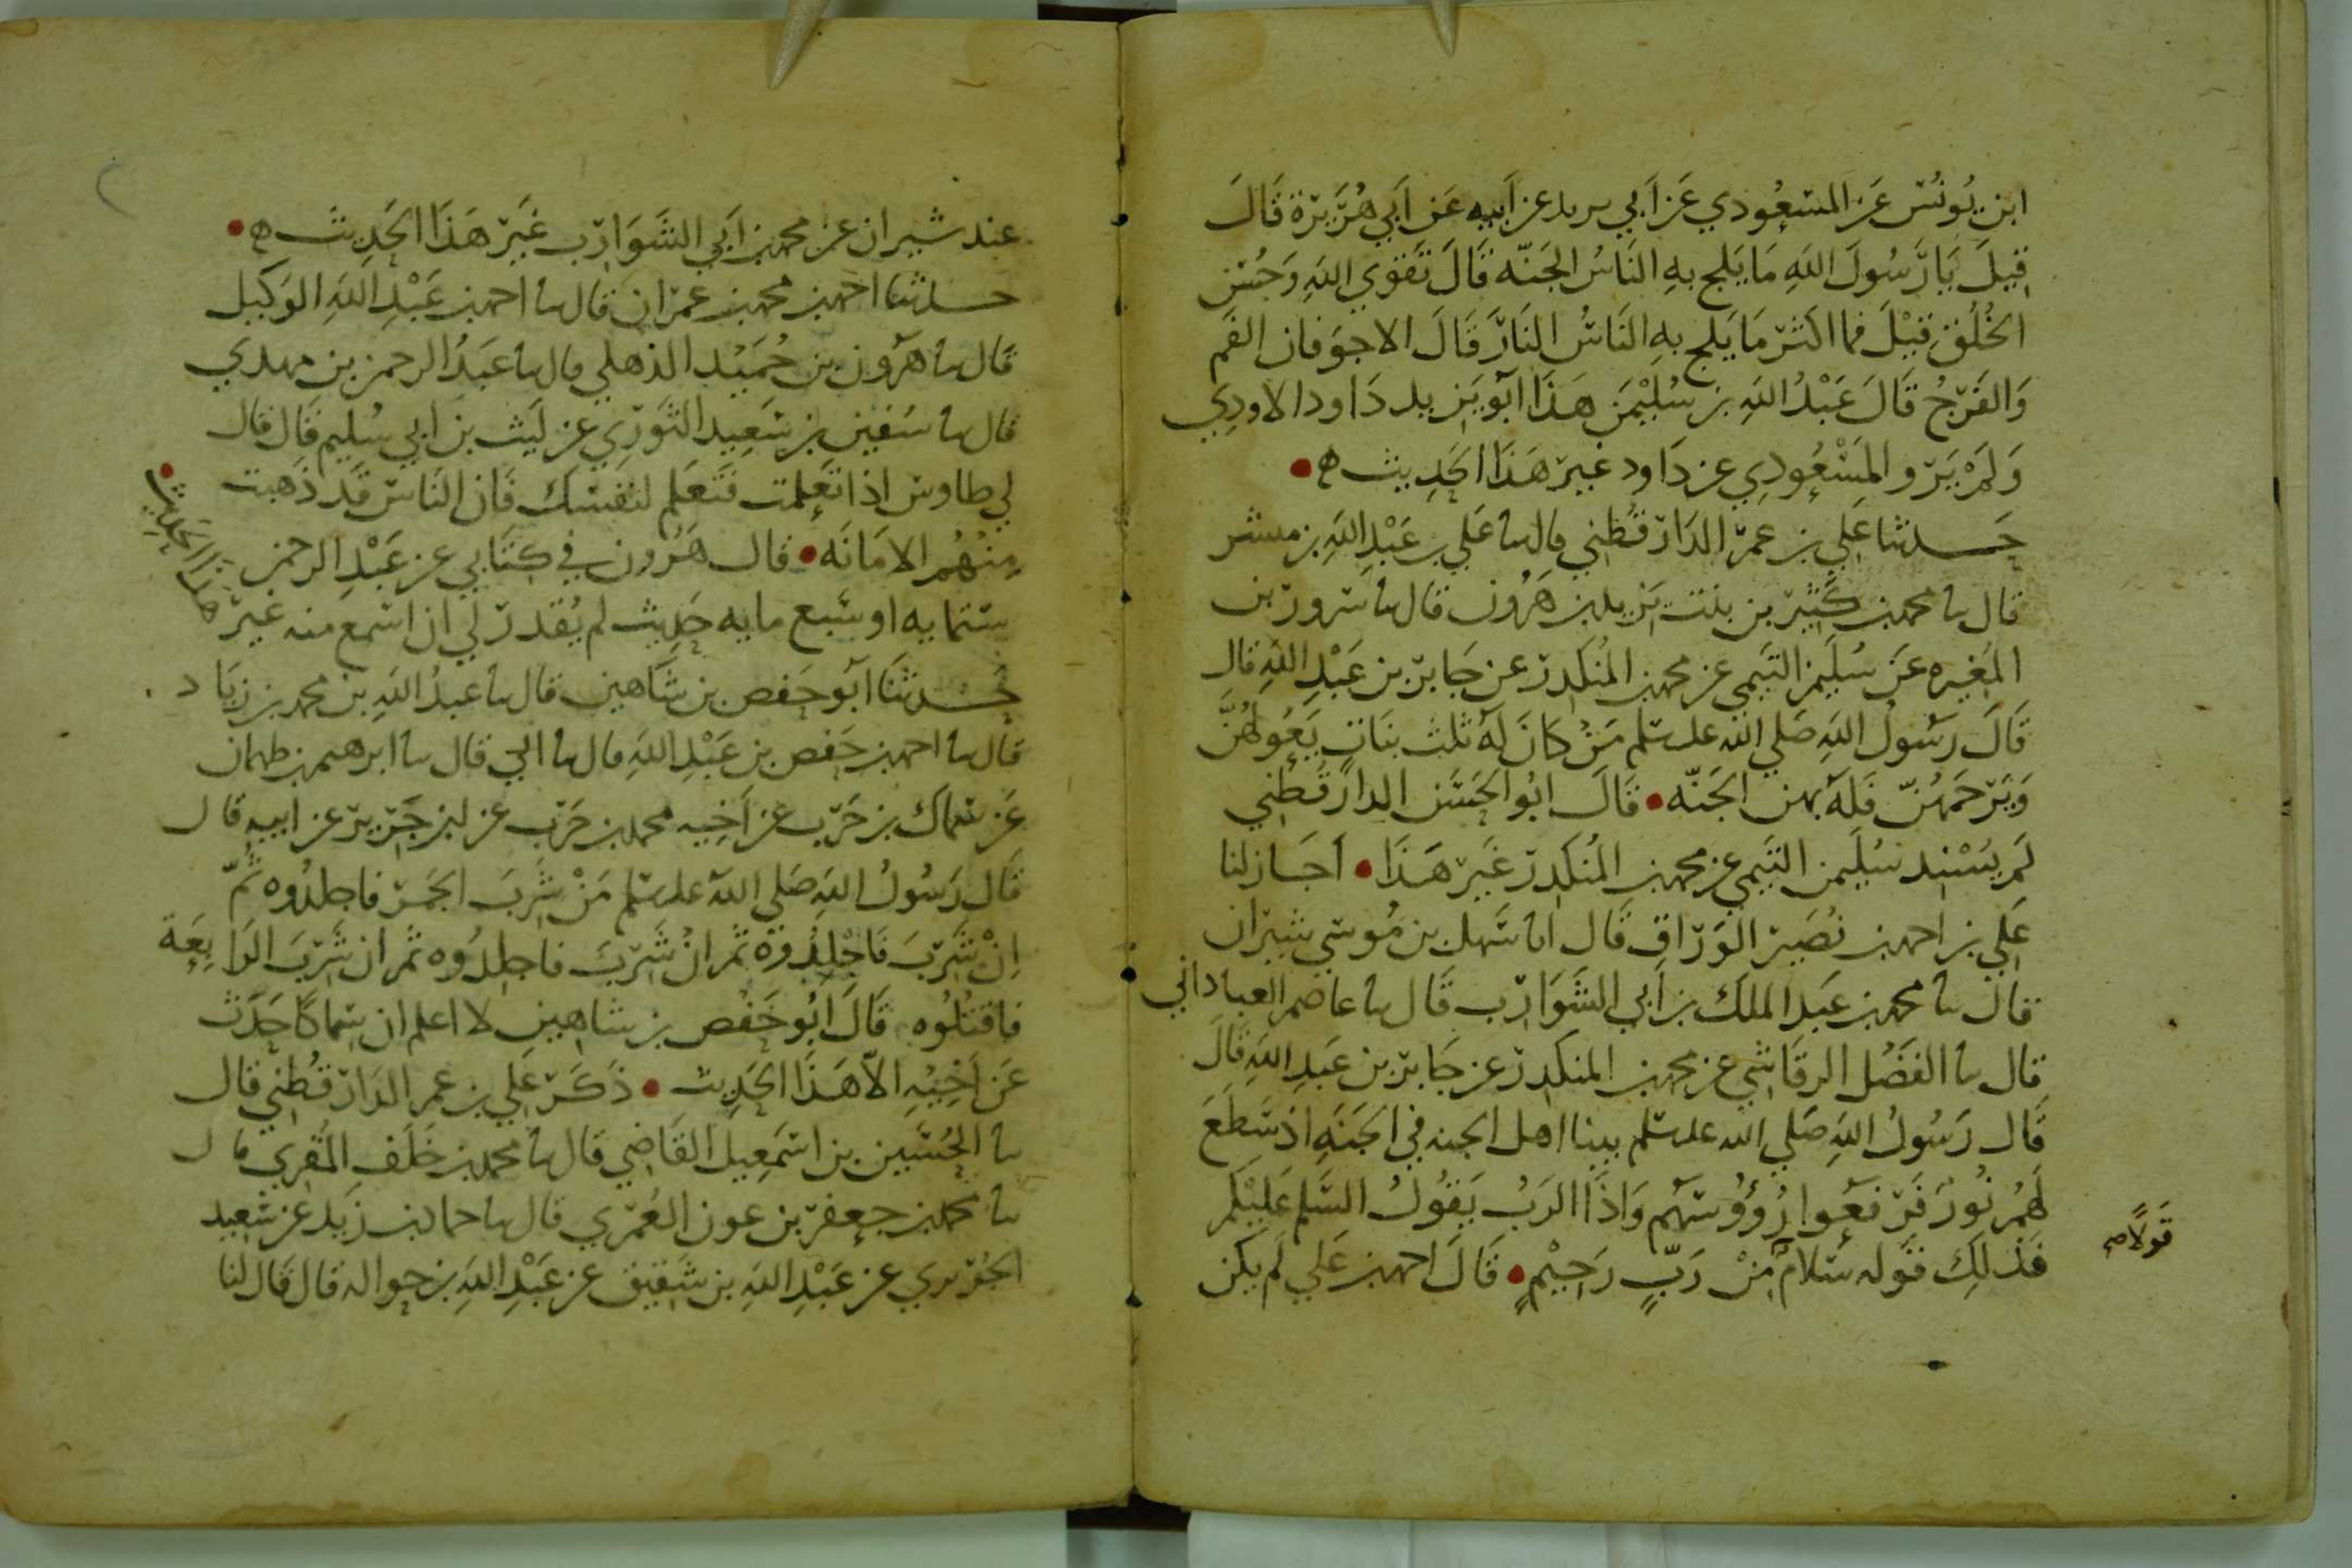 ابن يُونُس عَن المسعُودي عَن اَبي يريد عن اَبيه عَن اَبي هُرَيرَة قَالَ
قِيلَ يَا رَسُولَ اللهِ مَا يَلج بهِ النَاسُ الجَنّه قَالَ تَقوَي اللهِ وَحُسن
الخُلُق قيْلَ فما اكثر مَا يَلج بهِ النَاسُ النَارَ قَالَ الاجوَفان الفَم
وَالفَرجُ قَالَ عَبْدُ اللهِ بن سُلَيْمَن هَذَا ابَو يَزيد دَاود الاودِي
وَلَمْ يَرو المَسْعُودِي عن دَاود غير هَذَا الحَدِيث ه
حَدثنا عَلي بن عمر الدَارقُطني قال نا عَلي بن عَبْدِ اللهِ بن مبشر
قال نا محمد بن كَثير بن بنت يَزيد بن هَرُون قال نا سَرور بن
المُغيره عَن سُلَيمن التَيمي عن محمد بن المُنكَدر عن جَابر بن عَبْدِ اللهِ قال
قَالَ رَسُولُ اللهِ صَلي الله علىه سلم مَنْ كانَ لَهُ ثلث بنَاتٍ يَعُولهُنَّ
وَيَرحَمهُنّ فَلَهُ بهن الجَنّه • قَالَ ابُو الحَسَن الدارقُطني
لَم يسْنِد سُلَيمن التَيمي عن محمد بن المُنكدر غَيرَ هَذَا • اَجَازَ لنا
عَلي بن احمد بن نُصَير الوَرَاق قَال انا سَهل بن مُوسي شيرَان
قال نا محمد بن عَبد الملك بن اَبي الشَوَارب قَال نا عاصم العباداني
قال نا الفَضْل الرقَاشي عن محمد بن المنكدر عن جَابر بن عَبدِ اللهِ قَالَ
قَال رَسُولُ اللهِ صَلي الله علىه سلم بينا اهل الجنه في الجَنَهِ اذ سَطَعَ
لَهُمْ نُورٌ فَرَفعُوا رُؤُوسَهُم وَاذَا الرَبُ يَقُولُ السَّلم عَلَيْكم
فَذلِكَ قوله سَلامٌ مِنْ رَبٍّ رَحِيْمٍ • قَالَ احمد بن عَلي لَم يكن
قَولاً
عند شيران عن محمد بن اَبي الشَوَارب غَيرَ هَذَا الحَدِيث ه
حدثنا احمد بن محمد بن عمرَان قال نا احمد بن عَبْدِ اللهِ الوَكيل
قال نا هرُون بن حُمَيْد الذهلي قال نا عَبدُ الرحمن بن مهدي
قال نا سُفين بن سَعِيد الثَوري عن لَيث بن اَبي سُليم قَال قال
لي طاوس اذا تَعَلمت فتَعلم لنفسك فَان النَاس قَد ذَهبت
مِنهُم الامَانَه • قال هَرُون في كتَابي عن عَبْدِ الرحمن
ستمايه او سَبع مايه حَديث لم يُقدر لي ان اسمع منه غير
هذا الحَديث
حَدثنَا ابَو حَفص بن شَاهين قال نا عَبدُ اللهِ بن محمد بن زيَاد
قال نا احمد بن حَفص بن عَبْدِ اللهِ قال نا ابي قال نا ابرهيم بن طهمان
عَن سماك بن حَرب عن اَخيه محمد بن حَرب عن ابن جَرير عن ابيه قال
قَال رَسُولُ اللهِ صَلي الله علىه سلم مَنْ شَربَ الخَمر فاجلدُوه ثُمّ
اِنْ شَربَ فَاجْلدُوهُ ثم انْ شَربَ فاجلدُوه ثم ان شَربَ الرَابعَة
فاقتُلُوه قَالَ ابُو حَفْص بن شاهين لا اعلم ان سِمَاكًا حَدَث
عَن اَخِيْهِ الاّ هَذَا الحَدِيث • ذَكَر عَلي بن عمر الدَارقُطني قال
نا الحُسَين بن اسمَعِيل القَاضي قَال نا محمد بن خَلَف المُقري قال
نا محمد بن جعفر بن عون العُمَري قال نا حماد بن زَيد عن سَعيد
الجُرَيري عن عَبْدِ اللهِ بن شَقيق عن عَبْدِ اللهِ بن حواله قال قَال لنا